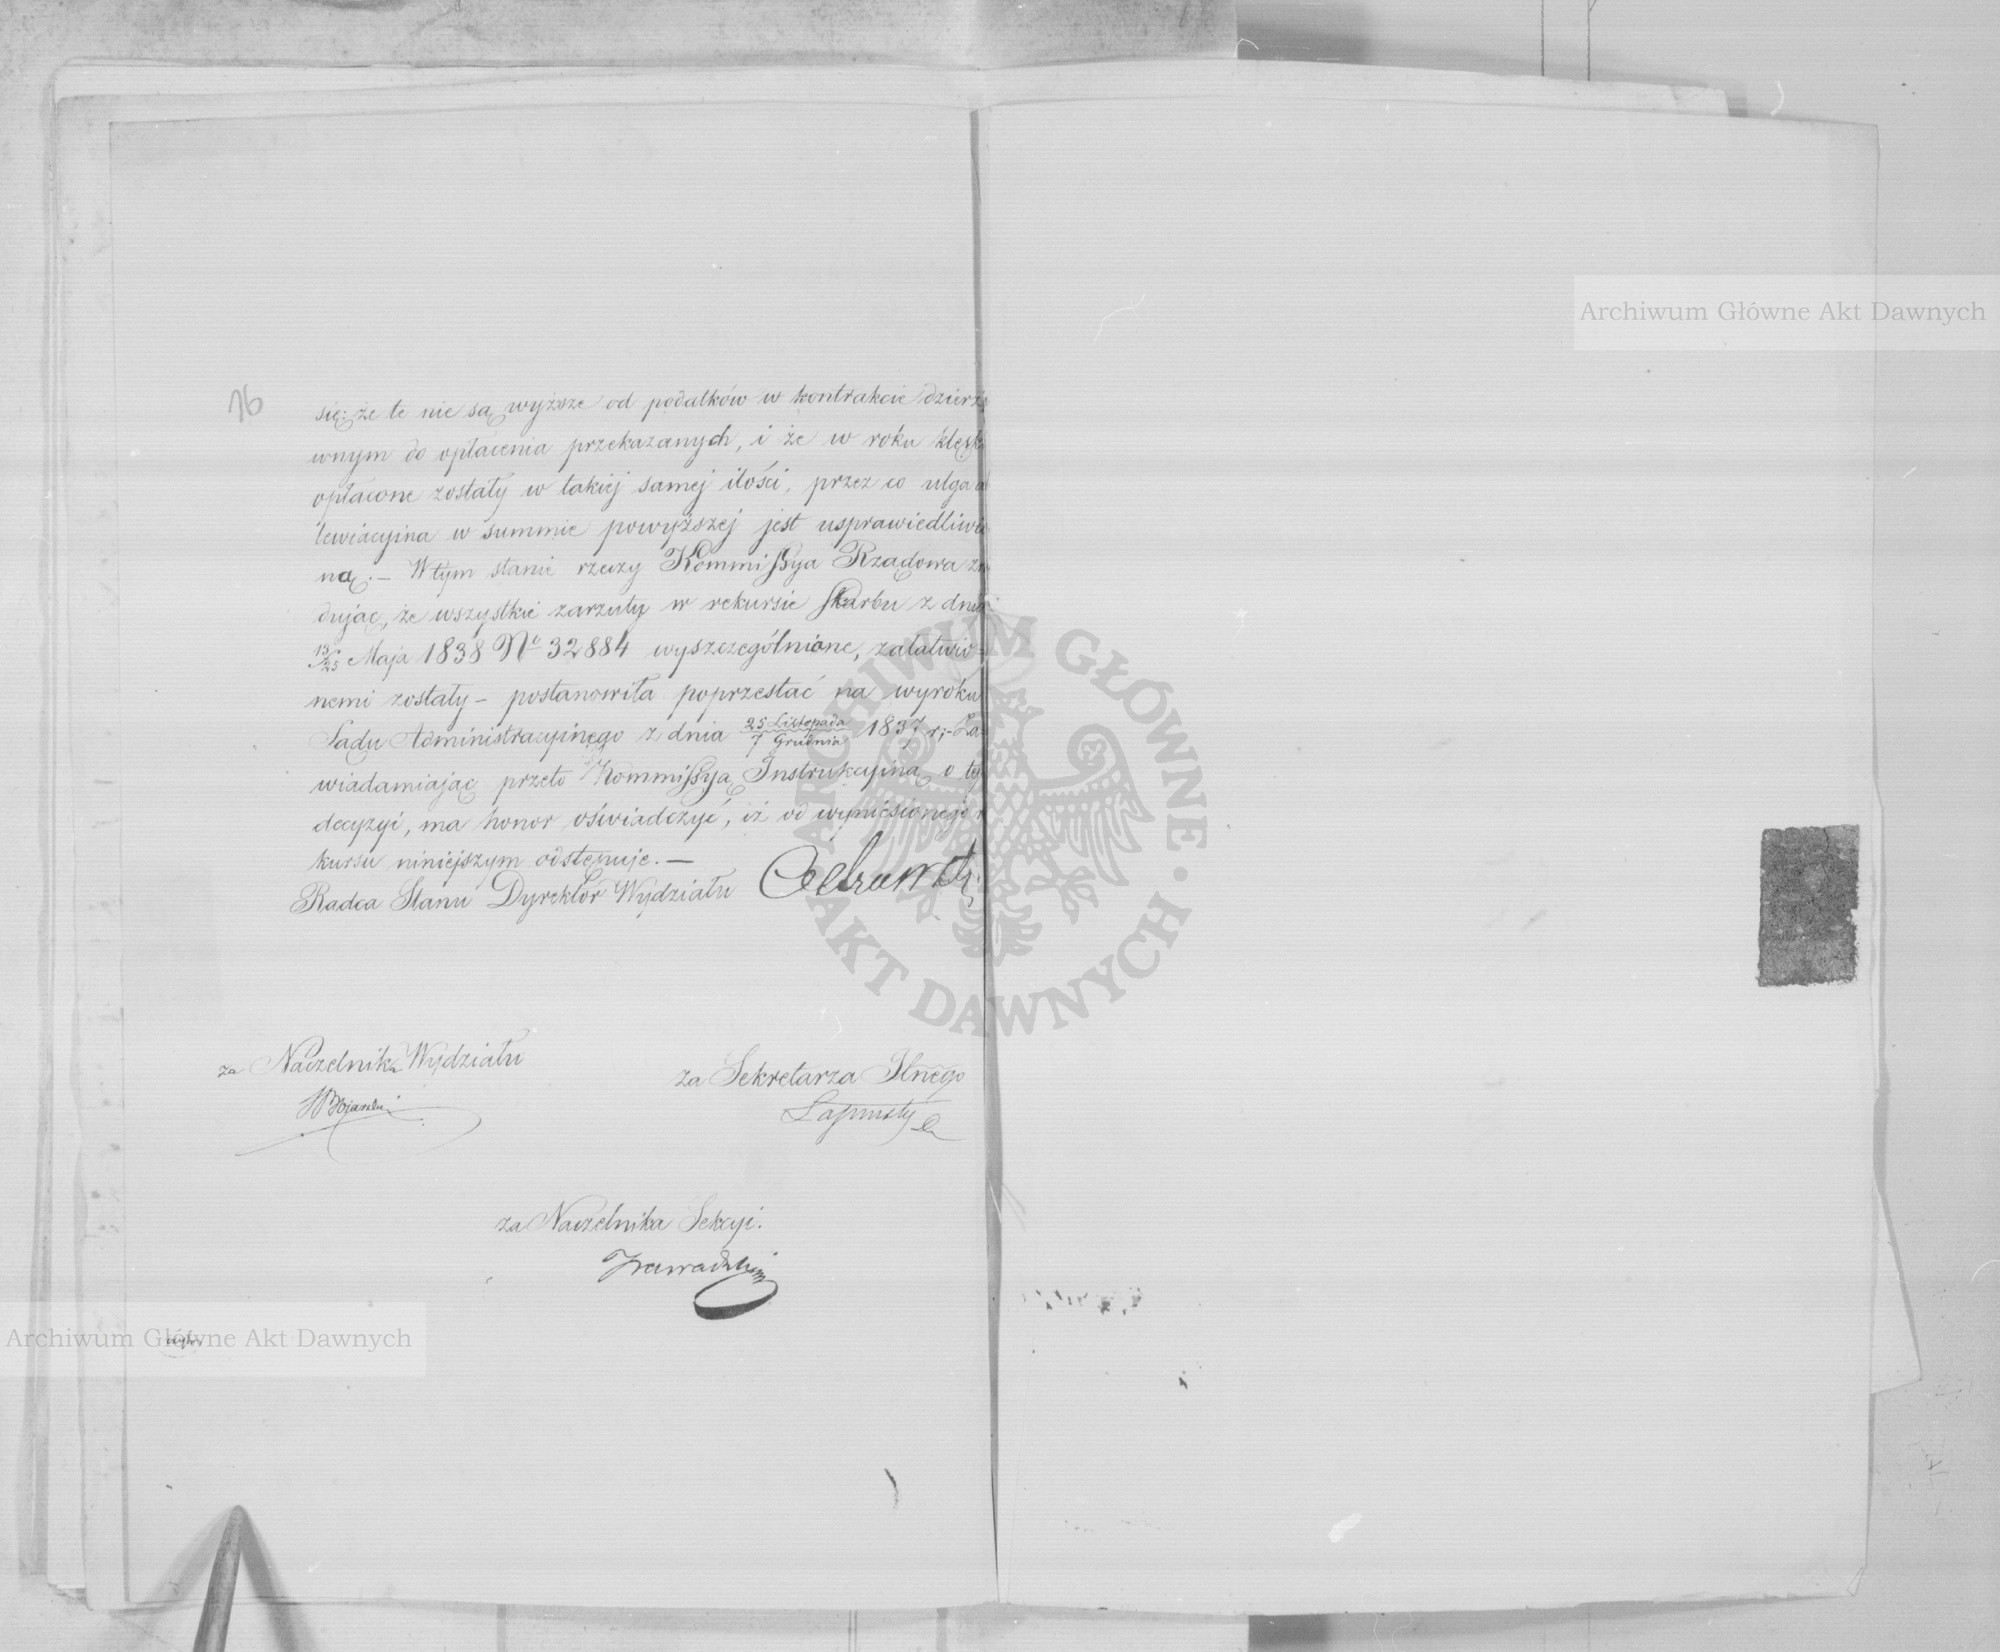 16
się: że te nie są wyższe od podatków w kontrakcie dzierża
wnym do opłacenia przekazanych, i że w roku klęski
opłacone zostały w takiej samej ilości, przez co ulga al
lewiacyjna w summie powyższej jest usprawiedliwio
ną. – W tym stanie rzeczy Kommissya Rządowa znaj
dując, że wszystkie zarzuty w rekursie Skarbu z dnia
13/25 Maja 1838 No 32884 wyszczególnione, załatwio-
nemi zostały – postanowiła poprzestać na wyroku
Sądu Administracyjnego z dnia 25 Listopada / 7 Grudnia 1837 r; – Za-
wiadamiając przeto Kommissyą Instrukcyjną o tej
decyzyi, ma honor oświadczyć, iż od wyniesionego re
kursu niniejszym odstępuje. –
Radca Stanu Dyrektor Wydziału
za Naczelnika Wydziału
za Sekretarza Jlnego
za Naczelnika Sekcyi.
Archiwum Główne Akt Dawnych
Archiwum Główne Akt Dawnych
ARCHIWUM GŁÓWNE · AKT DAWNYCH ·